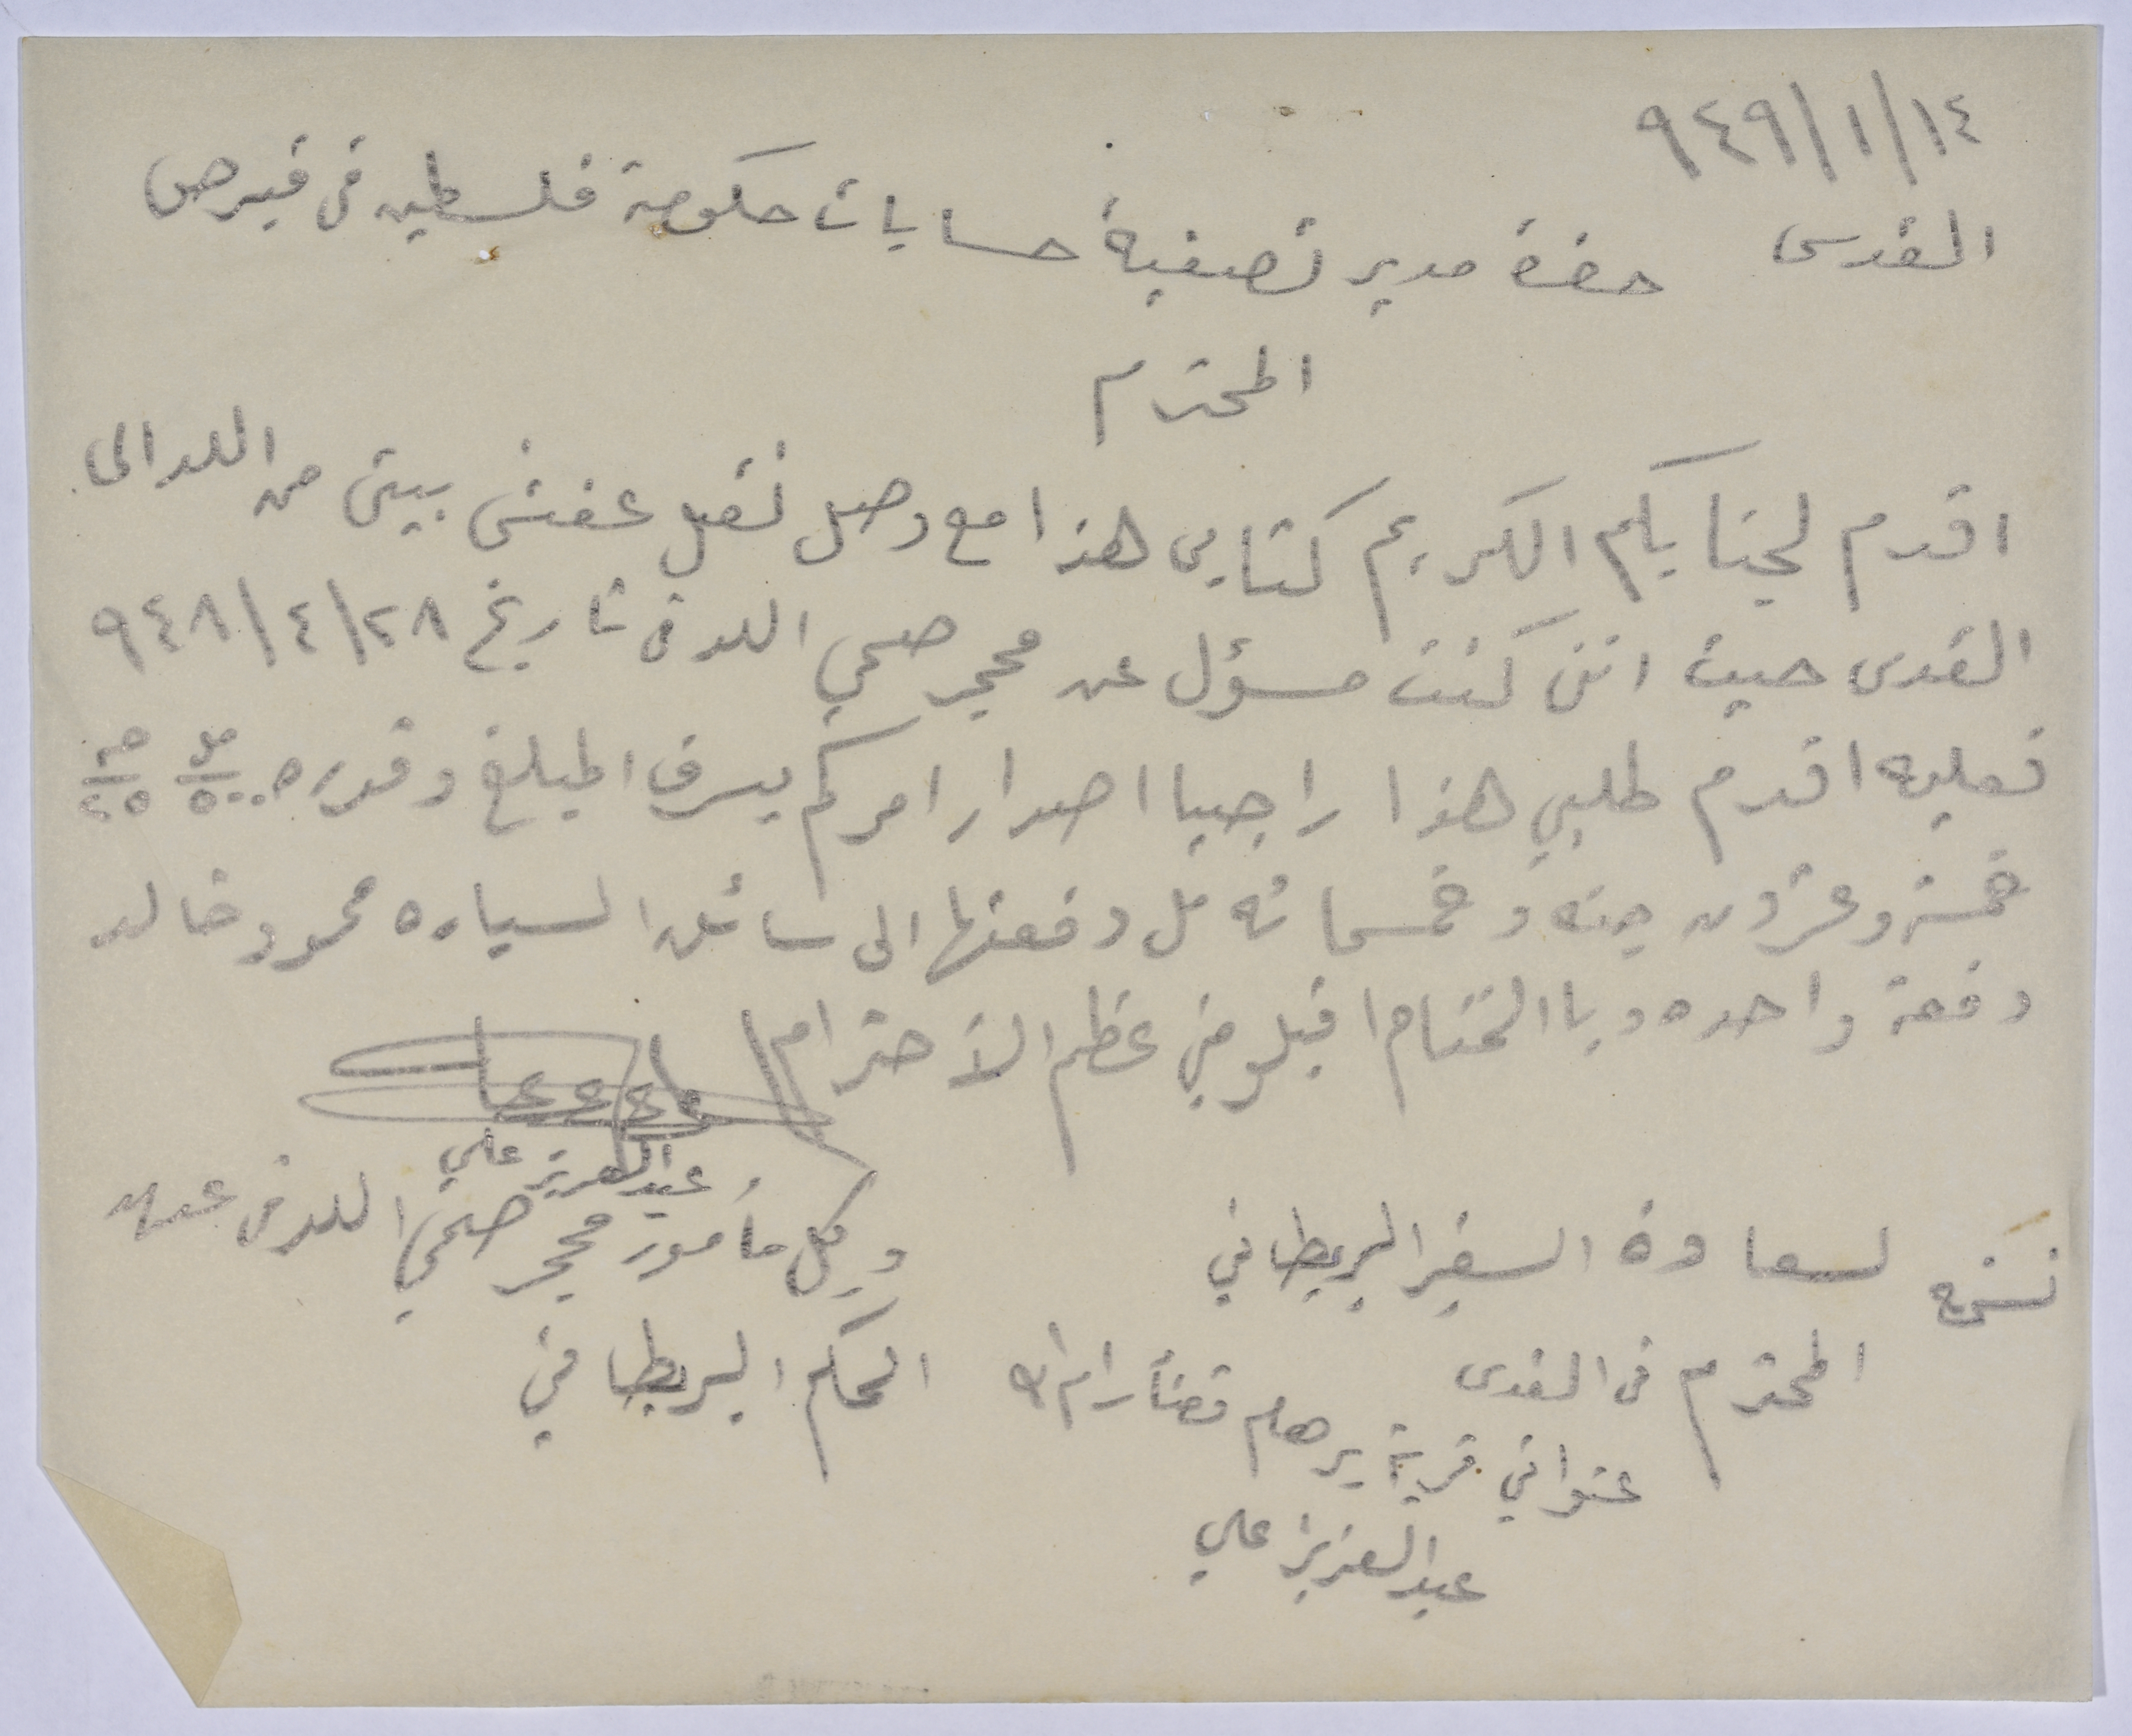 ٩٤٩/١/١٤
القدس حضرة مدير تصفية حسابات حكومة فلسطين في قبرص
المحترم
اقدم لجنابكم الكريم كتابي هذا مع وصل نقل عفش بيتي من اللد الى
القدس حيث انني كنت مسؤل عن محجر صحي اللد في تاريخ ٩٤٨/٤/٢٨
فعليه اقدم طلبي هذا راجيا اصدار امركم بسرف المبلغ وقدره ٥٠٠ مل ٢٥ جنه
خمسة وعشرون جنه وخمسمائه مل دفعتها الى سائق السياره محمود خالد
دفعة واحده وبا الختام اقبلو مني عظم الأحترام
عبد العزيز علي
وكل مأمور محجر صحي اللد في عهد
الحكم البريطاني
نسخه لسعادة السفير البريطاني
المحترم في القدس
عنواني قرية برهام قضأ رام الله
عبد العزيز علي